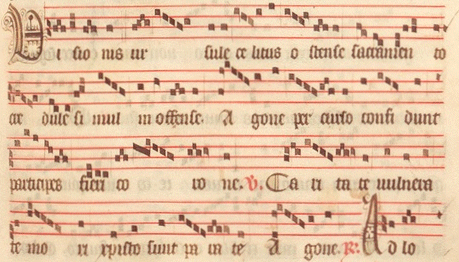 Visio nis ur sule ce litus o stense sacramen to
dule si mul in offense. A gone per acto confi dunt
participes fieri co ro ne. V. Ca ri ta te vulnera
te mo ri xpisto sunt pa ra te A gone. R: Ad lo